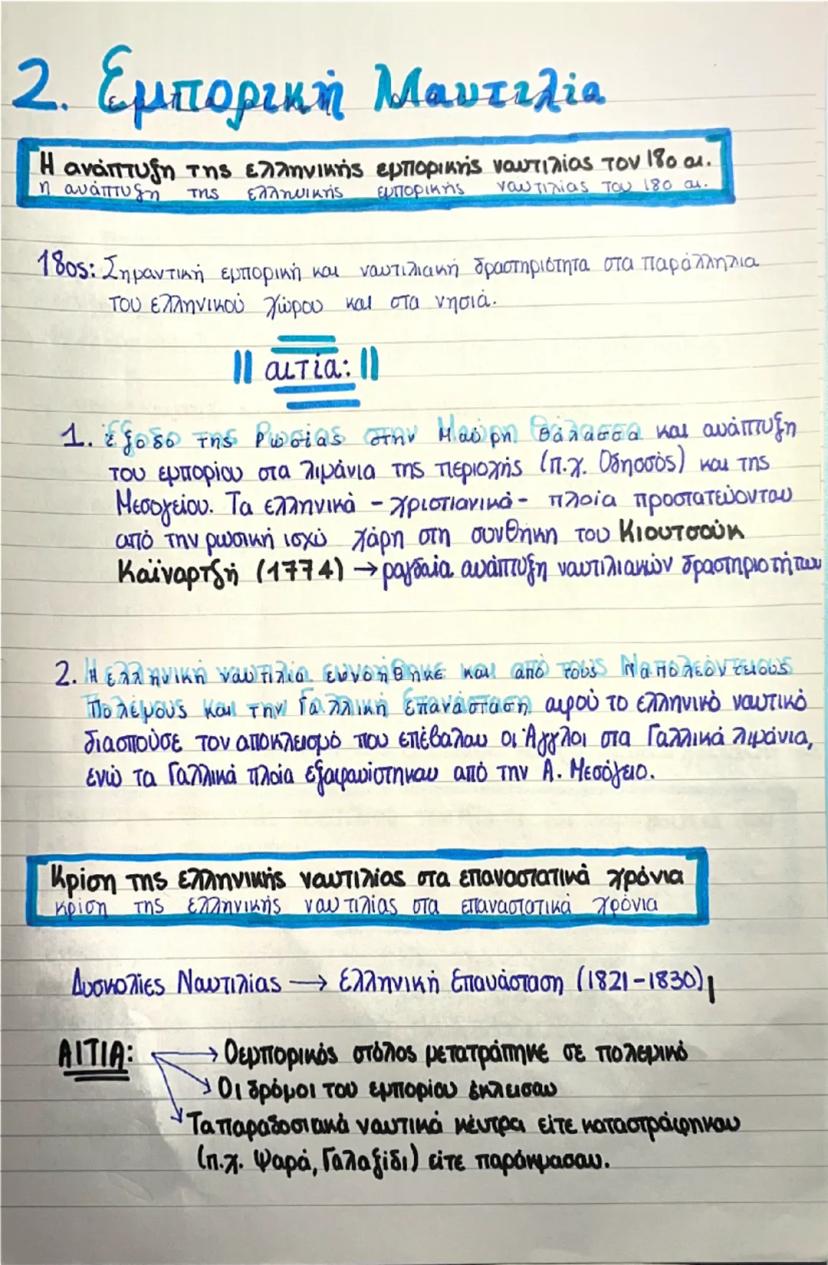 2. Εμπορική Ναυτιλία
Η ανάπτυξη της ελληνικής εμπορικής ναυτιλίας τον 18ο αι.
η ανάπτυξη της ελληνικής εμπορικής ναυτιλίας του 18ο αι.
18ος: Σημαντική εμπορική και ναυτιλιακή δραστηριότητα στα παράλληλια
του ελληνικού χώρου και στα νησιά.
|| αιτία: ||
1. Έξοδο της Ρωσίας στην Μαύρη Θάλασσα και ανάπτυξη
του εμπορίου στα λιμάνια της περιοχής (π.χ. Οδησσός) και της
Μεσογείου. Τα ελληνικά - χριστιανικά - πλοία προστατεύονταν
από την ρωσική ισχύ χάρη στη συνθήκη του Κιουτσούκ
Καϊναρτζή (1774) → ραγδαία ανάπτυξη ναυτιλιακών δραστηριοτήτων
2. Η ελληνική ναυτιλία ευνοήθηκε και από τους Ναπολεόντειους
Πολέμους και την Γαλλική Επανάσταση αφού το ελληνικό ναυτικό
διασπούσε τον αποκλεισμό που επέβαλαν οι Άγγλοι στα Γαλλικά λιμάνια,
ενώ τα Γαλλικά πλοία εξαφανίστηκαν από την Α. Μεσόγειο.
Κρίση της ελληνικής ναυτιλίας στα επαναστατικά χρόνια
κρίση της ελληνικής ναυτιλίας στα επαναστατικά χρόνια
Δυσκολίες Ναυτιλίας → Ελληνική Επανάσταση (1821-1830)
ΑΙΤΙΑ: → Ο εμπορικός στόλος μετατράπηκε σε πολεμικό
→ Οι δρόμοι του εμπορίου έκλεισαν
→ Τα παραδοσιακά ναυτικά κέντρα είτε καταστράφηκαν
(π.χ. Ψαρά, Γαλαξίδι) είτε παράκμασαν.